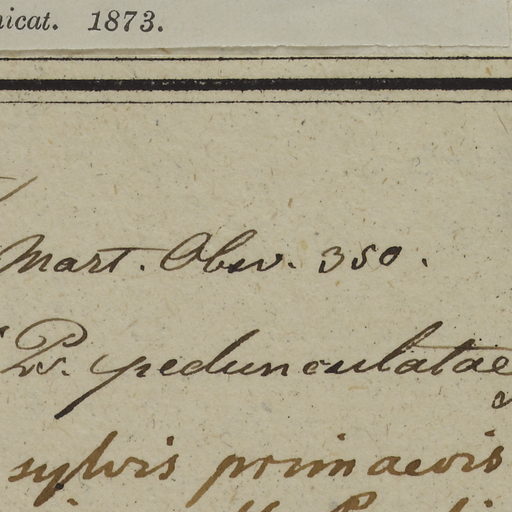 nicat. 1873.
Mart. Obsv. 350.
pedunculatae
sylvis primaevis